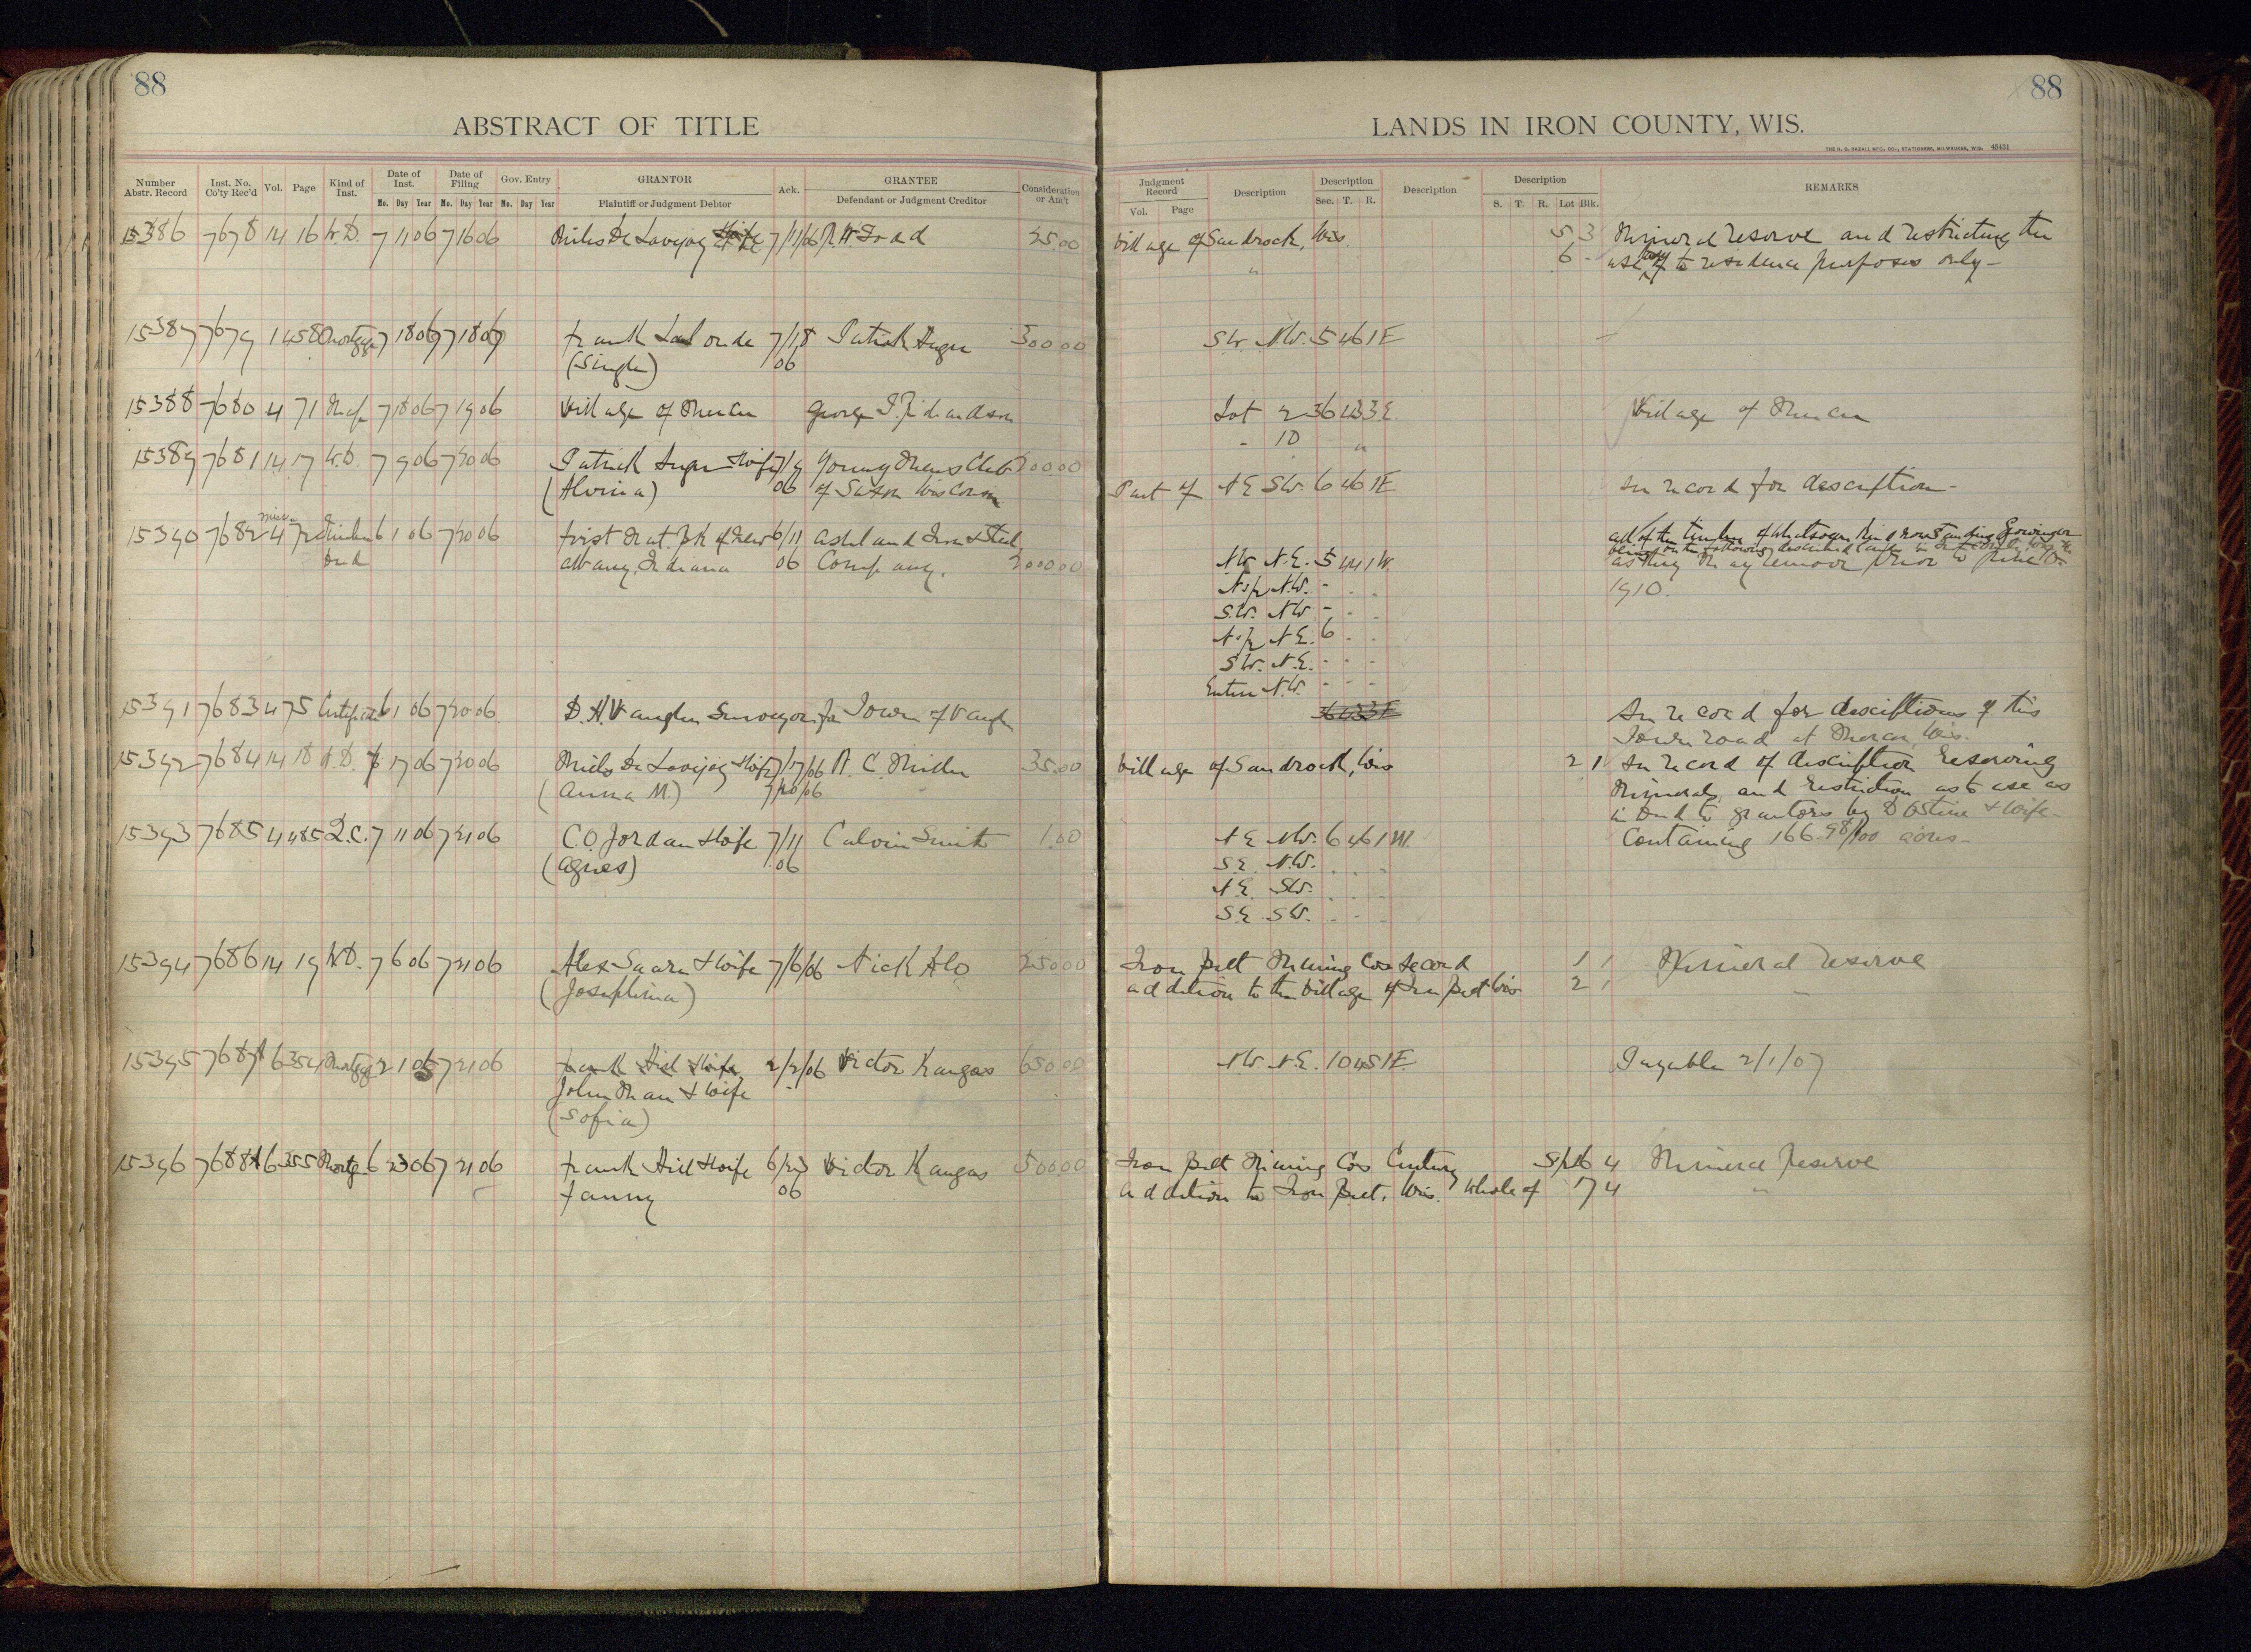 88
ABSTRACT OF TITLE
Number Abstr. Record
Inst. No. Co'ty Rec'd
Vol.
Page
Kind of Inst.
Date of Inst.
Mo. Day Year
Date of Filing
Mo. Day Year
Gov. Entry
Mo. Day Year
GRANTOR
Plaintiff or Judgment Debtor
Ack.
GRANTEE
Defendant or Judgment Creditor
Consideration or Am't
15386 7678 14 16 W.D. 7 11 06 7 16 06 De Lovejoy 7/11/06
15387 7679 1 458 Mortgage 7 18 06 7 18 06 Frank LaLonde 7/18 Patrick 300.00
(Single) 06
15388 7680 4 71 7 18 06 7 19 06 Village of George Richardson
15389 7681 14 17 W.D. 7 9 06 7 20 06 Patrick & Wife 7/9 Young Mens Club 200.00
(Alvina) 06 of Saxon Wisconsin
15390 7682 Misc. 4 72 Timber 6 1 06 7 20 06 First Nat. Bk of New 6/11 Ashland Iron & Steel
Deed Albany, Indiana 06 Company. 2000.00
15391 7683 4 75 Certificate 6 1 06 7 20 06 D.H. Vaughn Surveyor for Town of Vaughn
15392 7684 14 18 W.D. 7 17 06 7 20 06 De Lovejoy & Wife 7/17/06 A. C. Miller 35.00
(Anna M.) 7/20/06
15393 7685 4 485 Q.C. 7 11 06 7 21 06 C.O. Jordan & Wife 7/11 Calvin Smith 1.00
(Agnes) 06
15394 7686 14 19 W.D. 7 6 06 7 21 06 Alex Saari & Wife 7/6/06 Nick Alo 250.00
(Josephina)
15395 7687 6 354 Mortgage 2 1 06 7 21 06 Frank Hill & Wife 2/2/06 Victor Kangas 650.00
John & Wife
(Sofia)
15396 7688 6 355 Mortg. 6 23 06 7 21 06 Frank Hill & Wife 6/23 Victor Kangas 500.00
Fanny 06
88
LANDS IN IRON COUNTY, WIS.
THE H. G. RAZALL MFG. CO., STATIONERS, MILWAUKEE, WIS. 45431
Judgment Record
Vol. Page
Description
Description
Sec. T. R.
Description
Description
S. T. R. Lot Blk.
REMARKS
Village of Sandrock, Wis. 5 3 Mineral reserve and restricting the
" 6 - use to residence purposes only -
SW. NW. 5 46 1E
Lot 2 36 43 3E. Village of
- 10 "
Part of NE SW. 6 46 1E See record for description -
All of the timber of whatsoever kind now standing growing or
being on the following described lands in Iron County, Wis.
as they may remove prior to June
1910.
NW N.E. 5 44 1W.
N½ N.W. - - -
S.W. NW - - -
N½ N.E. 6 - -
SW. N.E. - - -
Entire N.W. - - -
36 43 3E
See record for descriptions of this
Town road at Wis.
Village of Sandrock, Wis 2 1 See record of description Reserving
Minerals, and restriction as to use as
in Deed to grantors by & Wife -
NE NW. 6 46 1W. Containing 166.98/100 acres -
S.E. N.W. - - -
N.E. SW. - - -
S.E. SW. - - -
Iron Belt Mining Cos Second 1 1 Mineral reserve
addition to the Village of Iron Belt Wis. 2 1 -
NW. N.E. 10 45 1E. Payable 2/1/07
Iron Belt Mining Cos Century S½ 6 4 Mineral Reserve
addition to Iron Belt, Wis. Whole of 7 4 "